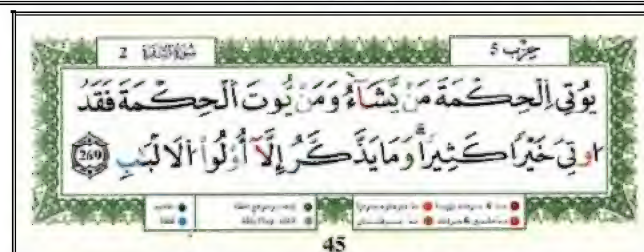 سُورَةُ الْبَقَرَة 2
حِزْب 5
يُوتِي اِلْحِكْمَةَ مَنْ يَّشَآءُ وَمَنْ يُّوتَ اَلْحِكْمَةَ فَقَدُ
اوتِيَ خَيْراً كَثِيراً وَمَا يَذَّكَّرُ إِلَّآ أُوْلُواْ اُلَالْبَٰبِ 269
45